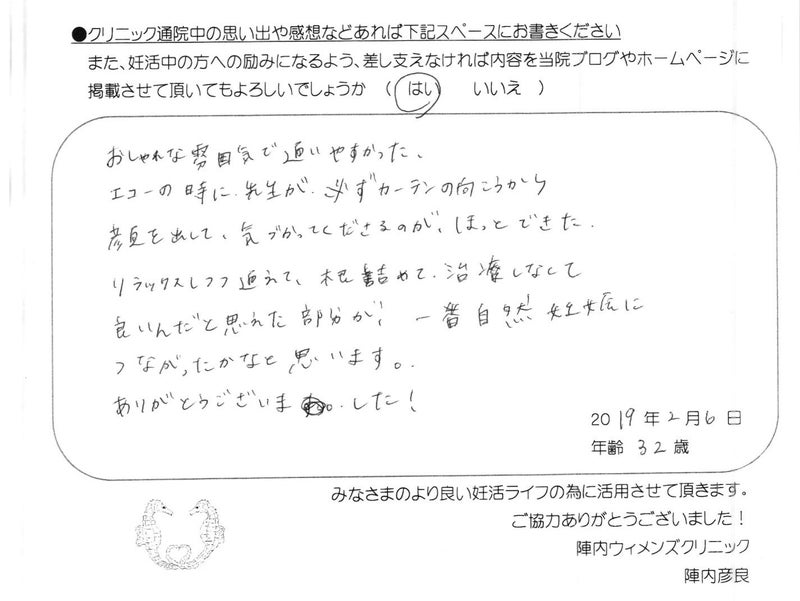 ●クリニック通院中の思い出や感想などあれば下記スペースにお書きください
また、妊活中の方への励みになるよう、差し支えなければ内容を当院ブログやホームページに
掲載させて頂いてもよろしいでしょうか （ はい いいえ ）
おしゃれな雰囲気で通いやすかった、
エコーの時に、先生が、必ずカーテンの向こうから
顔を出して、気づかってくださるのが、ほっとできた.
リラックスしつつ通えて、根詰めて、治療しなくて
良いんだと思えた部分が、一番自然妊娠に
つながったかなと思います。
ありがとうございま した！
2019年2月6日
年齢 32歳
みなさまのより良い妊活ライフの為に活用させて頂きます。
ご協力ありがとうございました！
陣内ウィメンズクリニック
陣内彦良